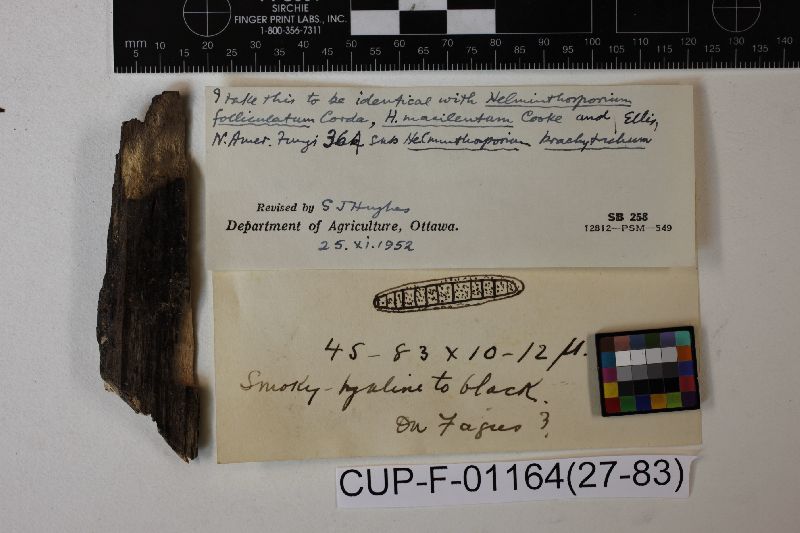 SIRCHIE
FINGER PRINT LABS., INC.
1-800-356-7311
mm 10 20 30 40 50 60 70 80 90 100 110 120 130 140
5
I take this to be identical with Helminthosporium
folliculatum Corda, H. macilentum Cooke and Ellis,
N. Amer. Fungi 364 sub Helminthosporium brachytrichum
Revised by S J Hughes
Department of Agriculture, Ottawa.
25.xi.1952
SB 258
12812—PSM—549
45-83 x 10-12 µ.
Smoky-hyaline to black.
On Fagus?
CUP-F-01164(27-83)